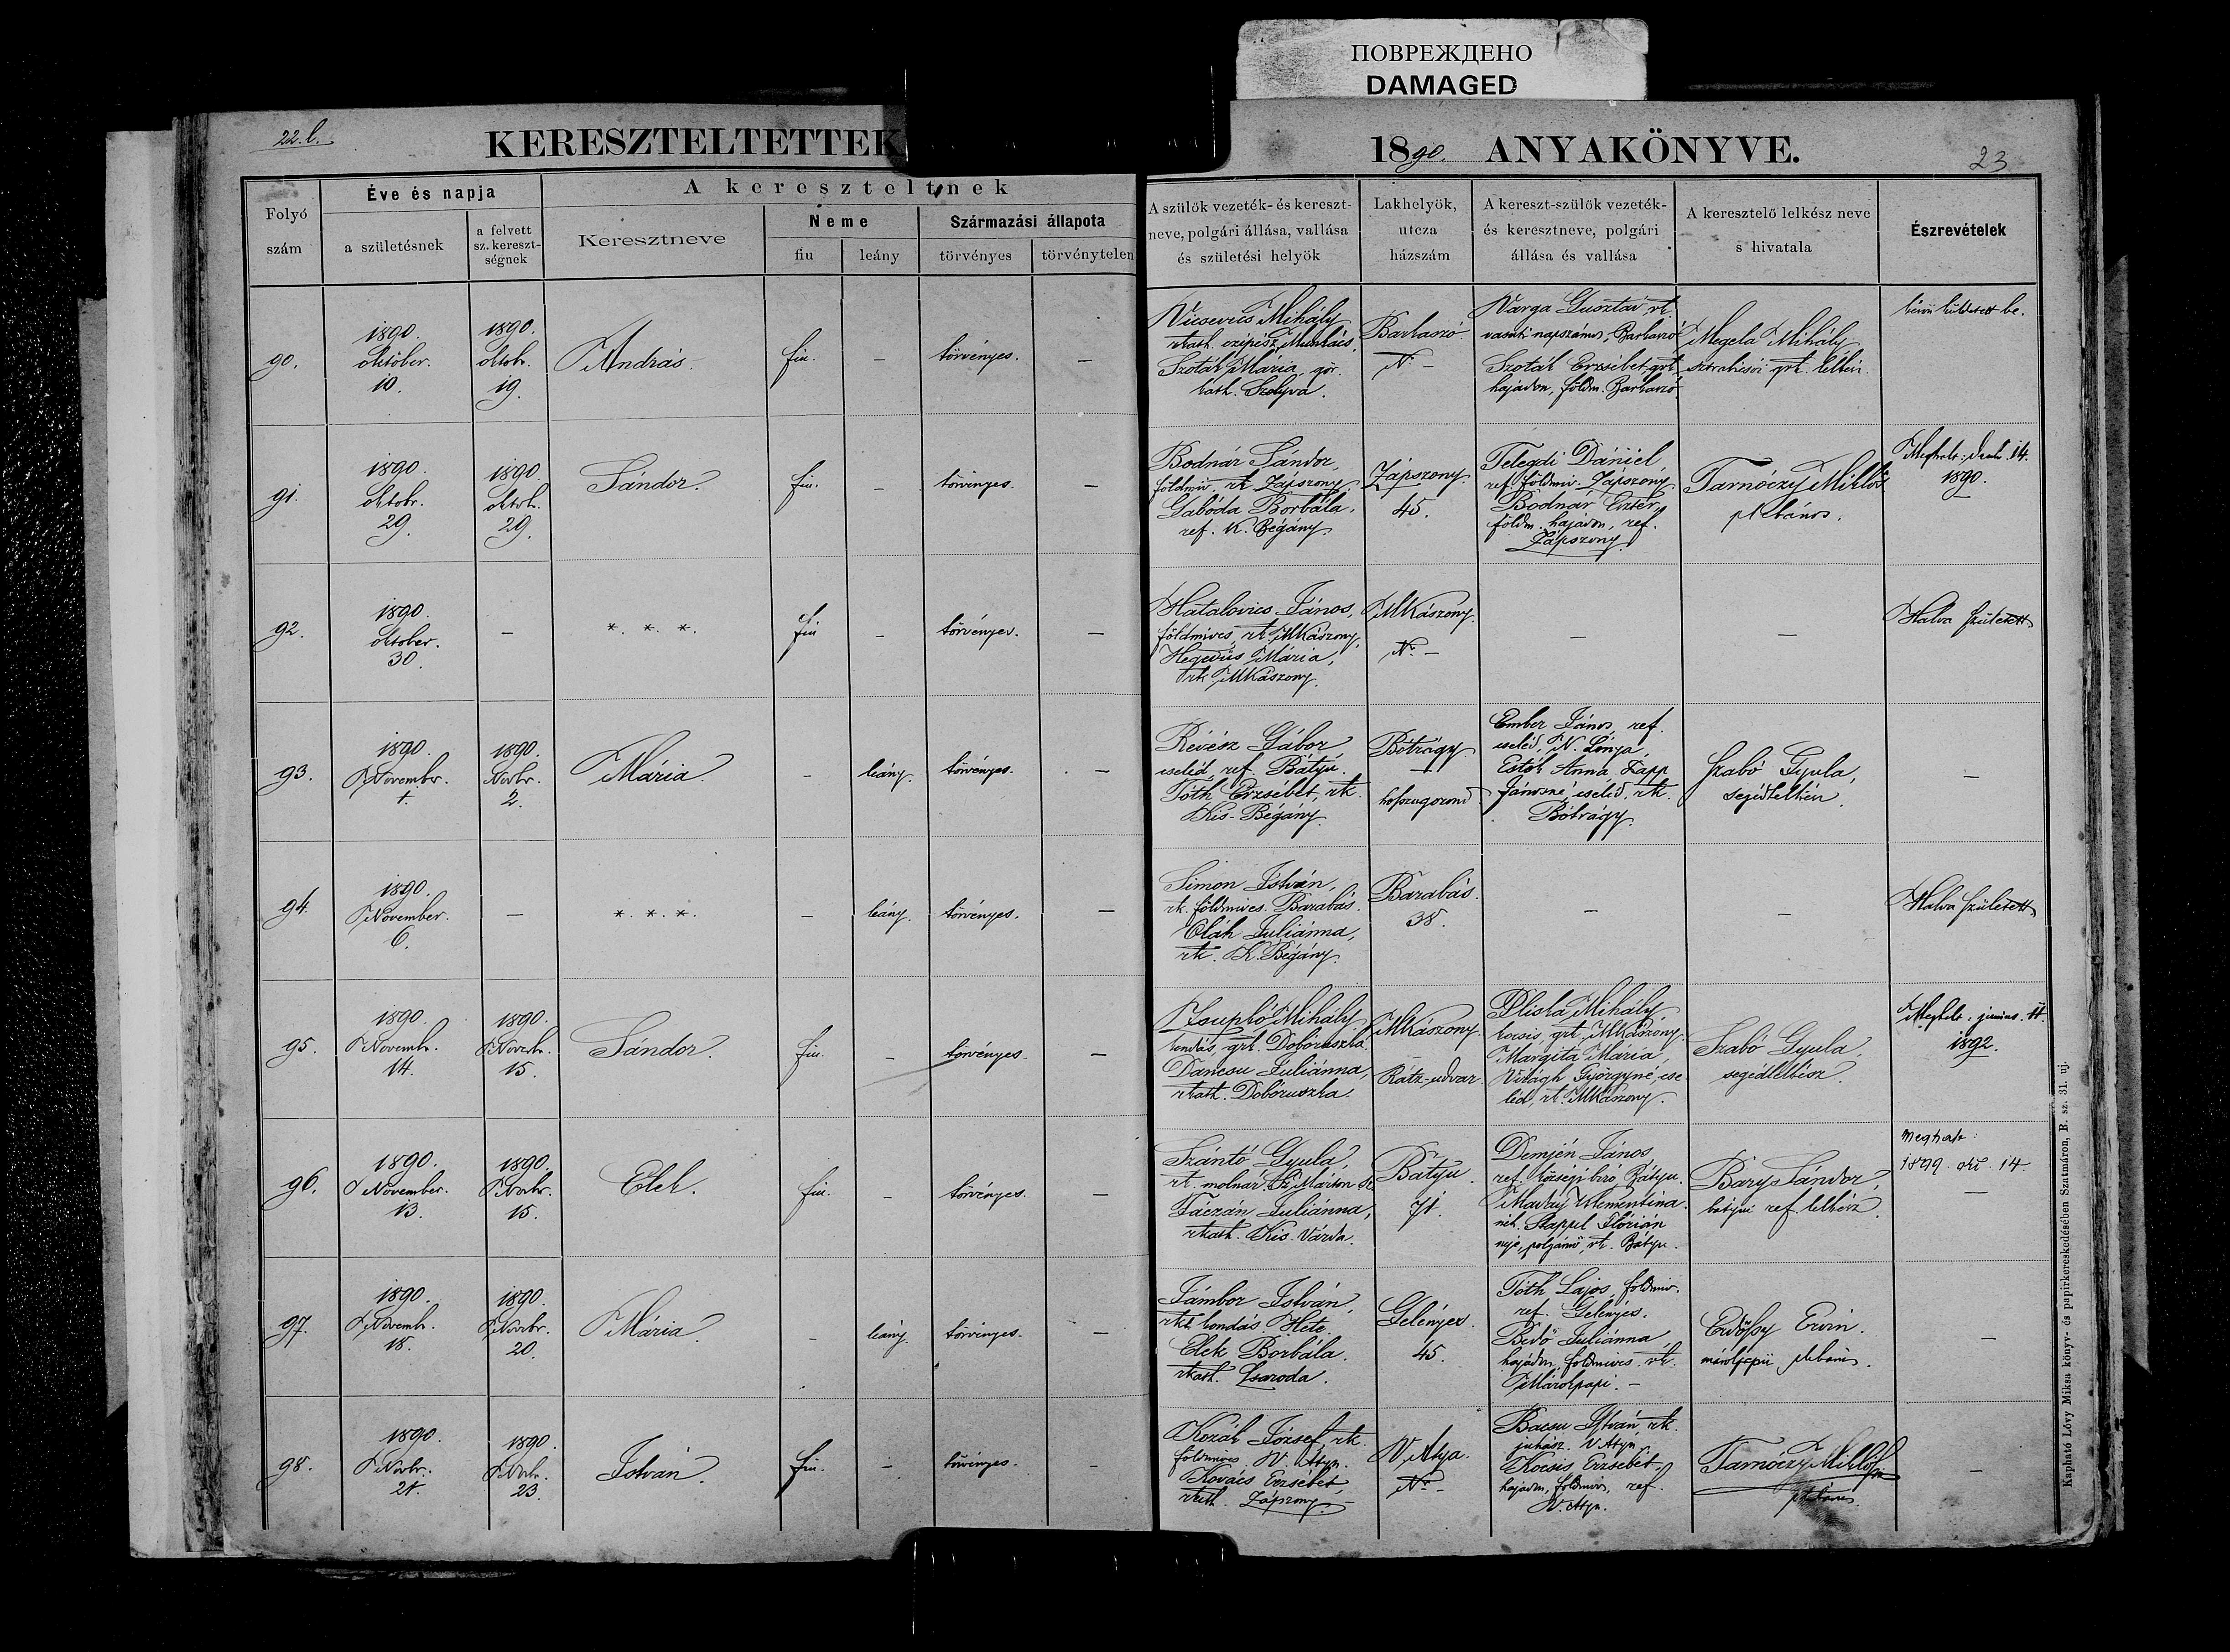 ПОВРЕЖДЕНО
DAMAGED
22. l.
KERESZTELTETTEK
1890. ANYAKÖNYVE.
23
Folyó szám
Éve és napja
a születésnek
a felvett sz. kereszt-ségnek
A kereszteltnek
Keresztneve
Neme
fiu
leány
Származási állapota
törvényes
törvénytelen
A szülők vezeték- és kereszt-
neve, polgári állása, vallása
és születési helyök
Lakhelyök,
utcza
házszám
A kereszt-szülők vezeték-
és keresztneve, polgári
állása és vallása
A keresztelő lelkész neve
s hivatala
Észrevételek
90.
1890.
október.
10.
1890.
oktob.
19.
András.
fiu.
–
törvényes.
–
Mihály
Munkács.
Szoták Mária, gör.
kath. Szolyva.
Barkaszó.
N. –
Varga Gusztáv rk.
vasuti napszámos, Barkaszó
Szoták Erzsébet grk
hajadon, földm. Barkaszó
Megela Mihály
grk. lelkész.
91.
1890.
oktobr.
29.
1890.
oktob.
29.
Sándor.
fiu.
–
törvényes.
–
Bodnár Sándor,
földmiv. rk Zápszony,
Gabóda Borbála.
ref. K. Bégány.
Zápszony.
45.
Telegdi Dániel
ref. földmiv. Zápszony.
Bodnár Eszter,
földm. hajadon, ref.
Zápszony.
Tarnóczy Miklós
plébános.
Meghalt: decb. 14.
1890.
92.
1890.
oktober.
30.
–
*. *. *.
fiu
–
törvényes.
–
Hatalovics János,
földmives, rk. MKászony,
Hegedüs Mária,
rk MKászony.
MKászony.
N. –
–
–
Halva született
93.
1890.
Novembr.
1.
1890.
Novbr.
2.
Mária.
–
leány.
törvényes.
–
Révész Gábor
cseléd, ref. Bátyu.
Tóth Erzsébet, rk.
Kis-Bégány.
Bótrágy.
–
Ember János, ref.
cseléd, N. Lónya
Estók Anna, Papp
Jánosné, cseléd, rk.
Bótrágy.
Szabó Gyula,
segédlelkész.
–
94.
1890.
November.
6.
–
*. *. *.
–
leány.
törvényes.
–
Simon István,
rk. földmives. Barabás.
Oláh Juliánna,
rk. K. Bégány.
Barabás.
38.
–
–
Halva született
95.
1890.
Novembr.
14.
1890.
Novbr.
15.
Sándor.
fiu.
–
törvényes.
–
Mihály
kondás, grk. Dobóruszka.
Dancsu Juliánna,
rkath. Dobóruszka.
MKászony.
Rátz-udvar.
Mihály,
kocsis, grk. MKászony.
Margitá Mária,
Virágh Györgyné, cse-
léd, rk. MKászony.
Szabó Gyula
segédlelkész.
Meghalt. junius. 11
1892.
96.
1890.
November.
13.
1890.
Novbr.
15.
Elek.
fiu.
–
törvényes.
–
Szántó Gyula,
rk. molnár,
Juliánna,
rkath. Kis-Várda.
Bátyu.
71.
Demjén János
ref. községi bíró, Bátyu.
Klementina.
Flórián
neje, rk. Bátyu.
Bary Sándor,
bátyui ref lelkész.
Meghalt:
1899. okt. 14.
–
97.
1890.
Novembr.
18.
1890.
Novbr.
20.
Mária.
–
leány.
törvényes.
–
Jámbor István,
kondás Hete.
Elek Borbála.
rkath. Csaroda.
Gelényes.
45.
Tóth Lajos földmiv.
ref. Gelényes.
Bedő Juliánna,
hajadon, földmives. rk.
Márokpapi. –
Erdőssy Ervin.
márokpapii plébános.
–
98.
1890.
Novbr.
21.
1890.
Novbr.
23.
István.
fiu.
–
törvényes.
–
Kozák József, rk.
földmives. V. Atya.
Kovács Erzsébet,
rkath. Zápszony. –
V. Atya.
N. –
Bacsu István, rk.
juhász. V Atya.
Kocsis Erzsébet,
hajadon, földmives, ref.
V. Atya.
Tarnóczy Miklós
plébános.
–
Kapható Lövy Miksa könyv- és papirkereskedésében Szatmáron, R. sz. 31. uj.